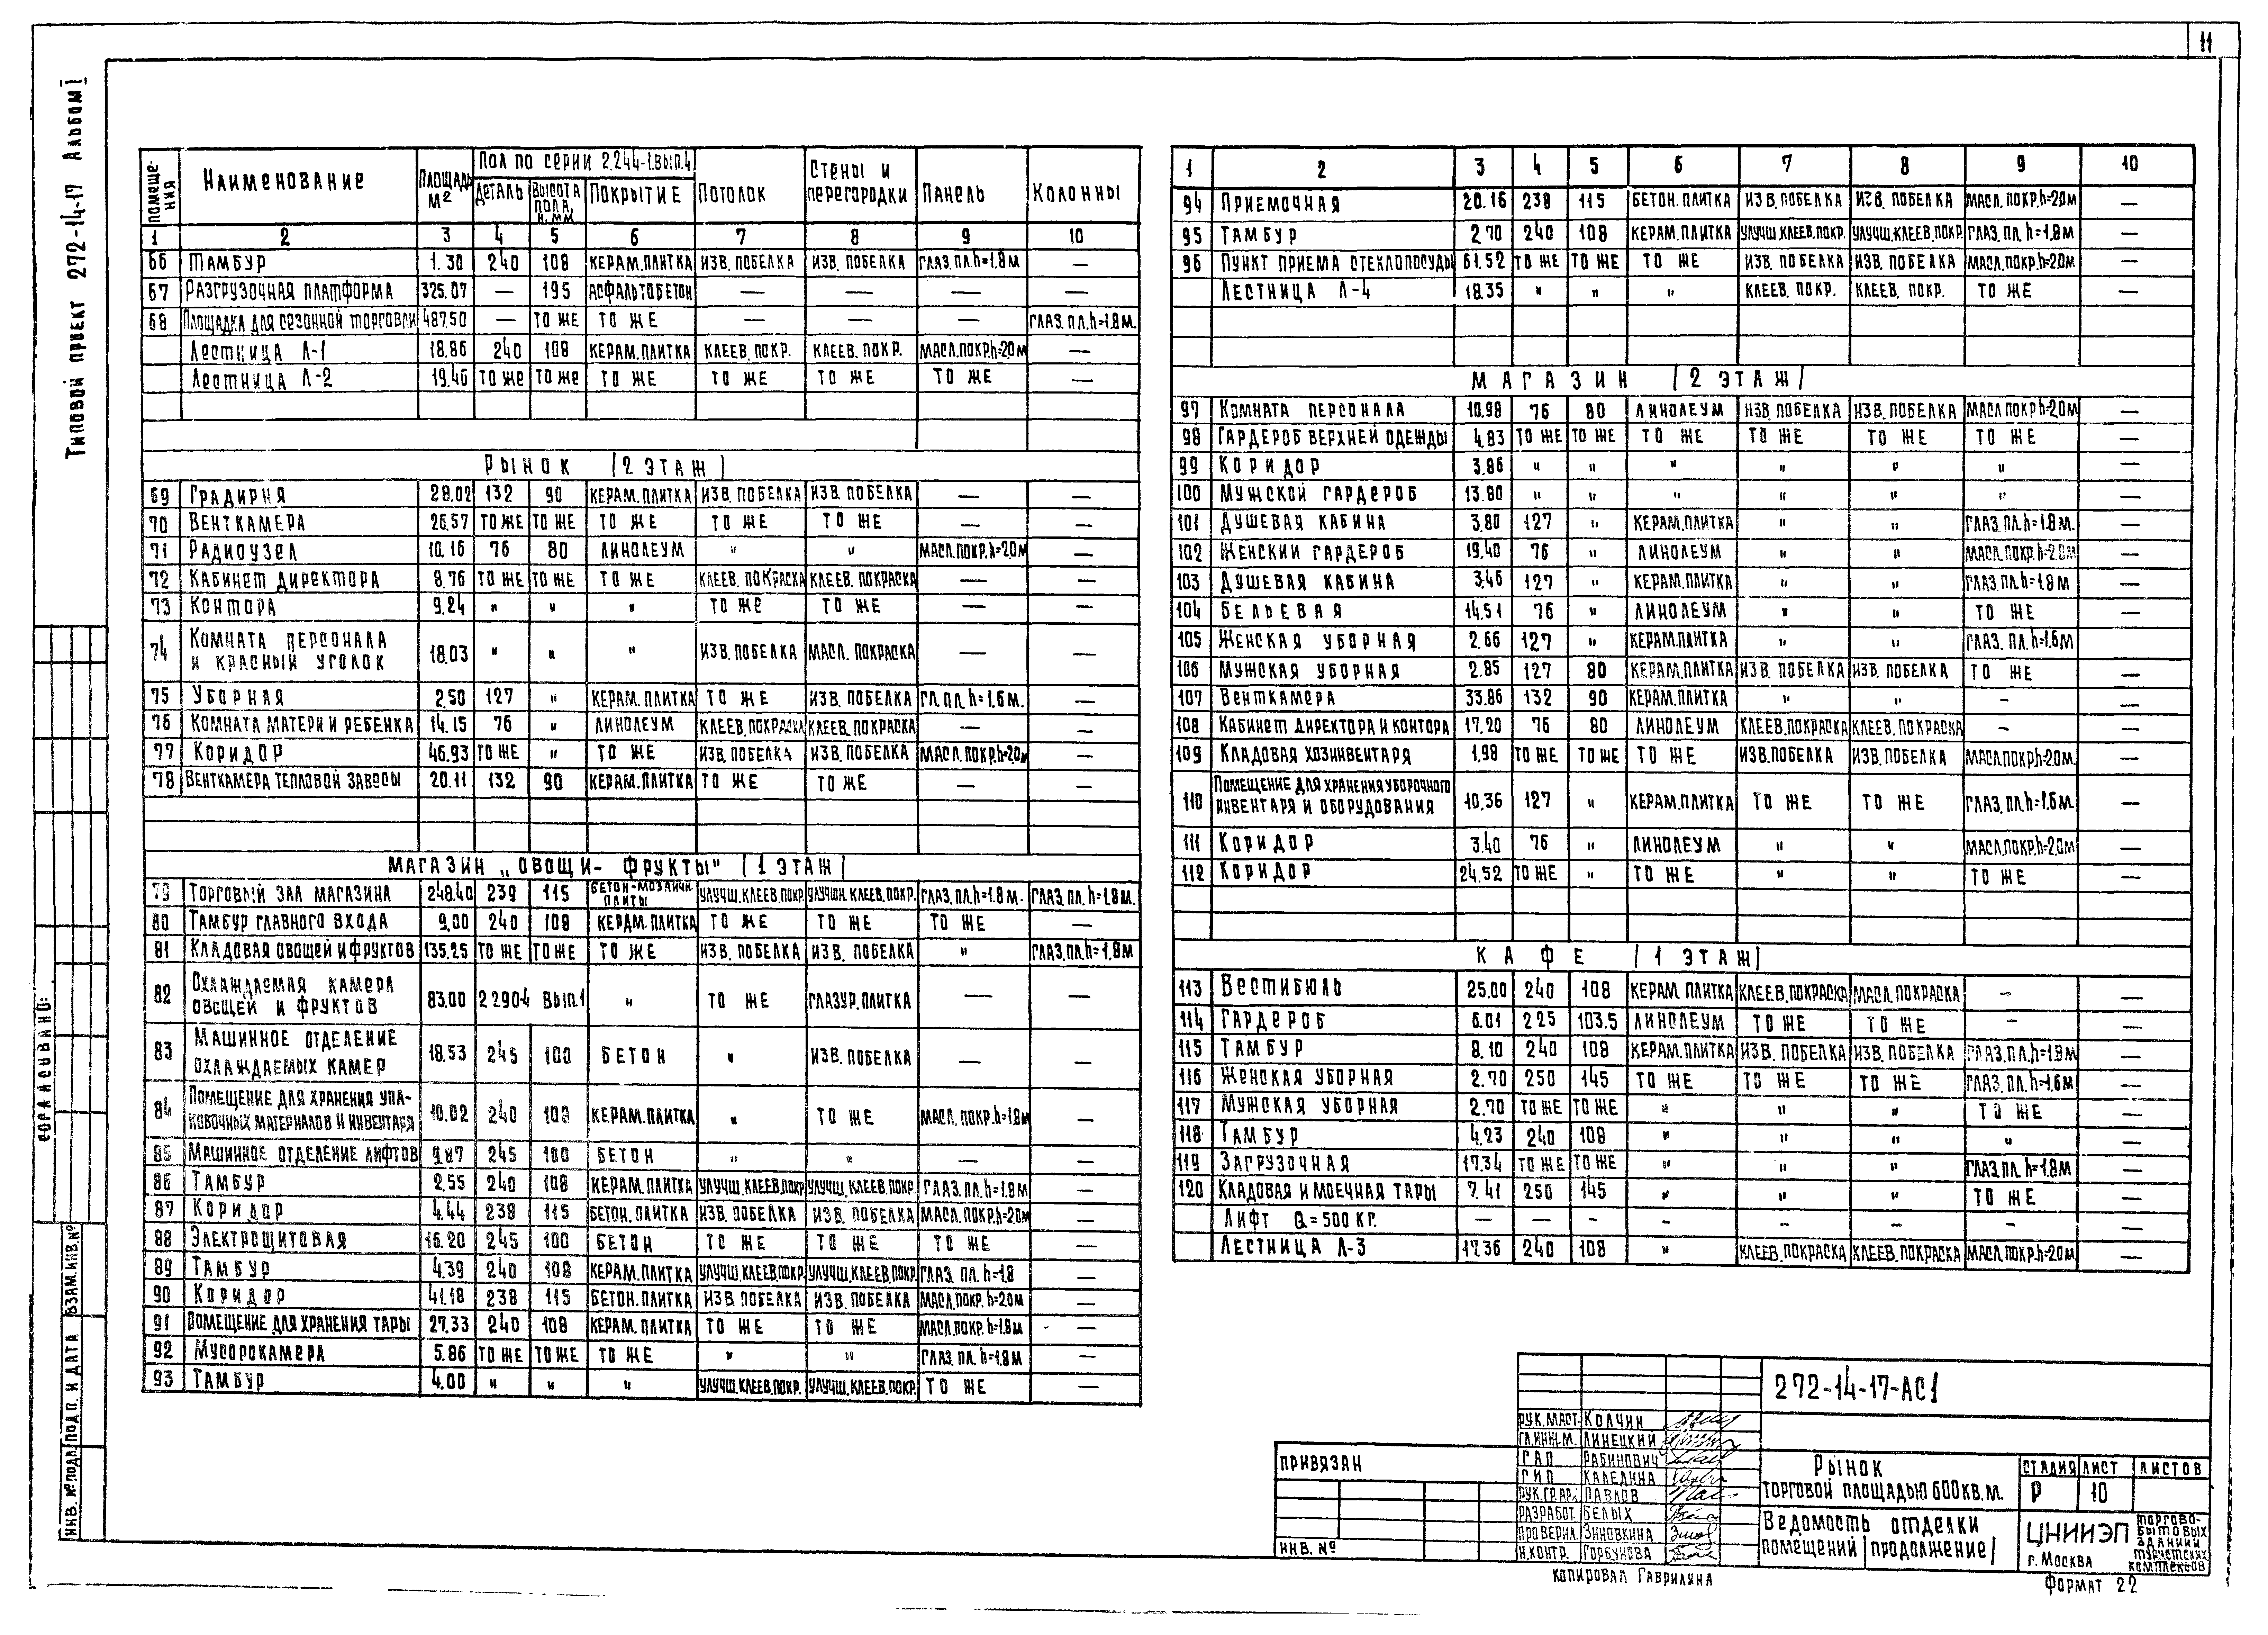 11
Типовой проект 272-14-17 Альбом I
Помещения | Наименование | Площадь м2 | Пол по серии 2.244-1.вып.4 | Потолок | Стены и перегородки | Панель | Колонны
Деталь | Высота пола, h, мм | Покрытие
1 | 2 | 3 | 4 | 5 | 6 | 7 | 8 | 9 | 10
66 | Тамбур | 1.30 | 240 | 108 | Керам.плитка | Изв. побелка | Изв. побелка | Глаз.пл.h=1.8м | —
67 | Разгрузочная платформа | 325.07 | — | 195 | Асфальтобетон | — | — | — | —
68 | Площадка для сезонной торговли | 487.50 | — | То же | То же | — | — | — | Глаз.пл.h=1.8м.
Лестница Л-1 | 18.86 | 240 | 108 | Керам.плитка | Клеев. покр. | Клеев. покр. | Масл.покр.h=2.0м | —
Лестница Л-2 | 19.46 | То же | То же | То же | То же | То же | То же | —
Рынок (2 этаж)
69 | Градирня | 28.02 | 132 | 90 | Керам.плитка | Изв. побелка | Изв. побелка | — | —
70 | Венткамера | 26.57 | То же | То же | То же | То же | То же | — | —
71 | Радиоузел | 10.16 | 76 | 80 | Линолеум | " | " | Масл.покр.h=2.0м | —
72 | Кабинет директора | 8.76 | То же | То же | То же | Клеев. покраска | Клеев. покраска | — | —
73 | Контора | 9.24 | " | " | " | То же | То же | — | —
74 | Комната персонала и красный уголок | 18.03 | " | " | " | Изв. побелка | Масл. покраска | — | —
75 | Уборная | 2.50 | 127 | " | Керам. плитка | То же | Изв. побелка | Гл.пл. h=1.6м. | —
76 | Комната матери и ребенка | 14.15 | 76 | " | Линолеум | Клеев. покраска | Клеев. покраска | — | —
77 | Коридор | 46.93 | То же | " | То же | Изв. побелка | Изв. побелка | Масл. покр.h=2.0м | —
78 | Венткамера тепловой завесы | 20.11 | 132 | 90 | Керам. плитка | То же | То же | — | —
Магазин „Овощи- фрукты" (1 этаж)
79 | Торговый зал магазина | 248.40 | 239 | 115 | Бетон-мозаичн. плиты | Улучш.клеев.покр. | Улучш.клеев.покр. | Глаз.пл.h=1.8м. | Глаз.пл.h=1.8м.
80 | Тамбур главного входа | 9.00 | 240 | 108 | Керам.плитка | То же | То же | То же | —
81 | Кладовая овощей и фруктов | 135.25 | То же | То же | То же | Изв. побелка | Изв. побелка | " | Глаз.пл.h=1.8м
82 | Охлаждаемая камера овощей и фруктов | 83.00 | 2 290-4 вып.1 | " | То же | Глазур.плитка | — | —
83 | Машинное отделение охлаждаемых камер | 18.53 | 245 | 100 | Бетон | " | Изв. побелка | — | —
84 | Помещение для хранения упаковочных материалов и инвентаря | 10.02 | 240 | 108 | Керам.плитка | " | То же | Масл. покр.h=1.8м | —
85 | Машинное отделение лифтов | 9.87 | 245 | 100 | Бетон | " | " | — | —
86 | Тамбур | 2.55 | 240 | 108 | Керам.плитка | Улучш.клеев.покр | Улучш.клеев.покр. | Глаз.пл.h=1.8м | —
87 | Коридор | 4.44 | 238 | 115 | Бетон.плитка | Изв. побелка | Изв. побелка | Масл.покр.h=2.0м | —
88 | Электрощитовая | 16.20 | 245 | 100 | Бетон | То же | То же | То же | —
89 | Тамбур | 4.39 | 240 | 108 | Керам.плитка | Улучш.клеев.покр. | Улучш.клеев.покр. | Глаз. пл.h=1.8 | —
90 | Коридор | 41.18 | 238 | 115 | Бетон.плитка | Изв побелка | Изв. побелка | Масл.покр. h=2.0м | —
91 | Помещение для хранения тары | 27.33 | 240 | 108 | Керам. плитка | То же | То же | Масл.покр. h=1.8м | —
92 | Мусорокамера | 5.86 | То же | То же | То же | " | " | Глаз. пл. h=1.8м | —
93 | Тамбур | 4.00 | " | " | " | Улучш.клеев.покр. | Улучш.клеев.покр. | То же | —
1 | 2 | 3 | 4 | 5 | 6 | 7 | 8 | 9 | 10
94 | Приемочная | 20.16 | 238 | 115 | Бетон. плитка | Изв. побелка | Изв. побелка | Масл.покр.h=2.0м | —
95 | Тамбур | 2.70 | 240 | 108 | Керам.плитка | Улучш.клеев.покр. | Улучш.клеев.покр | Глаз.пл. h=1.8м | —
96 | Пункт приема стеклопосуды | 61.52 | То же | То же | То же | Изв. побелка | Изв. побелка | Масл.покр.h=2.0м | —
Лестница Л-4 | 18.35 | " | " | " | Клеев. покр. | Клеев. покр. | То же | —
Магазин (2 этаж)
97 | Комната персонала | 10.98 | 76 | 80 | Линолеум | Изв. побелка | Изв. побелка | Масл покр h=2.0м | —
98 | Гардероб верхней одежды | 4.83 | То же | То же | То же | То же | То же | То же | —
99 | Коридор | 3.86 | " | " | " | " | " | " | —
100 | Мужской гардероб | 13.80 | " | " | " | " | " | " | —
101 | Душевая кабина | 3.80 | 127 | " | Керам.плитка | " | " | Глаз.пл.h=1.8м. | —
102 | Женский гардероб | 19.40 | 76 | " | Линолеум | " | " | Масл.покр.h=2.0м | —
103 | Душевая кабина | 3.46 | 127 | " | Керам.плитка | " | " | Глаз.пл.h=1.8м | —
104 | Бельевая | 14.51 | 76 | " | Линолеум | " | " | То же | —
105 | Женская уборная | 2.66 | 127 | " | Керам.плитка | " | " | Глаз. пл. h=1.6м | —
106 | Мужская уборная | 2.85 | 127 | 80 | Керам.плитка | Изв. побелка | Изв. побелка | То же | —
107 | Венткамера | 33.86 | 132 | 90 | Керам.плитка | " | " | — | —
108 | Кабинет директора и контора | 17.20 | 76 | 80 | Линолеум | Клеев.покраска | Клеев.покраска | — | —
109 | Кладовая хозинвентаря | 1.98 | То же | То же | То же | Изв.побелка | Изв. побелка | Масл.покр.h=2.0м. | —
110 | Помещение для хранения уборочного инвентаря и оборудования | 10.36 | 127 | " | Керам.плитка | То же | То же | Глаз.пл.h=1.6м. | —
111 | Коридор | 3.40 | 76 | " | Линолеум | " | " | Масл.покр.h=2.0м | —
112 | Коридор | 24.52 | То же | " | То же | " | " | То же | —
Кафе (1 этаж)
113 | Вестибюль | 25.00 | 240 | 108 | Керам плитка | Клеев.покраска | Масл.покраска | — | —
114 | Гардероб | 6.01 | 225 | 103.5 | Линолеум | То же | То же | — | —
115 | Тамбур | 8.10 | 240 | 108 | Керам.плитка | Изв. побелка | Изв. побелка | Глаз.пл.h=1.8м | —
116 | Женская уборная | 2.70 | 250 | 145 | То же | То же | То же | Глаз.пл.h=1.6м | —
117 | Мужская уборная | 2.70 | То же | То же | " | " | " | То же | —
118 | Тамбур | 4.23 | 240 | 108 | " | " | " | " | —
119 | Загрузочная | 17.34 | То же | То же | " | " | " | Глаз.пл. h=1.8м | —
120 | Кладовая и моечная тары | 7.41 | 250 | 145 | " | " | " | То же | —
Лифт Q=500 кг. | — | — | — | — | — | — | — | —
Лестница Л-3 | 17.36 | 240 | 108 | " | Клеев.покраска | Клеев.покраска | Масл.покр.h=2.0м | —
Согласовано:
Инв. № подл. | Подп. и дата | Взам.инв.№
Привязан
Инв. №
Рук.маст. Колчин
Гл.инж.м. Линецкий
ГАП Рабинович
ГИП Каледина
Рук.гр.ар. Павлов
Разработ. Белых
Проверил. Зиновкина
Н.контр. Горбунова
272-14-17-АС1
Рынок
торговой площадью 600 кв.м.
Стадия | Лист | Листов
Р | 10
Ведомость отделки
помещений (продолжение)
ЦНИИЭП
г. Москва
торгово-
бытовых
зданий и
туристских
комплексов
Копировал Гаврилина
Формат 22